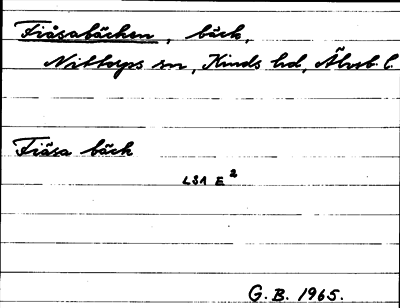 Fiåsabäcken, bäck,
Nittorps sn, Kinds hd, Älvsb. l.
Fiåsa bäck
LSA E 2
G. B. 1965.